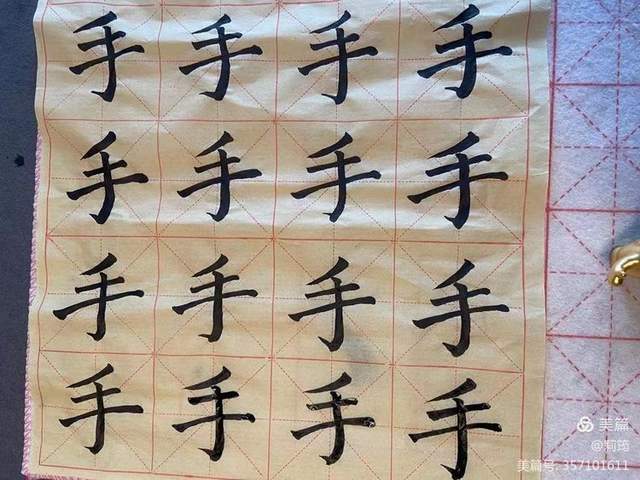 手手手手
手手手手
手手手手
手手手手
美篇
@莉筠
美篇号: 357101611